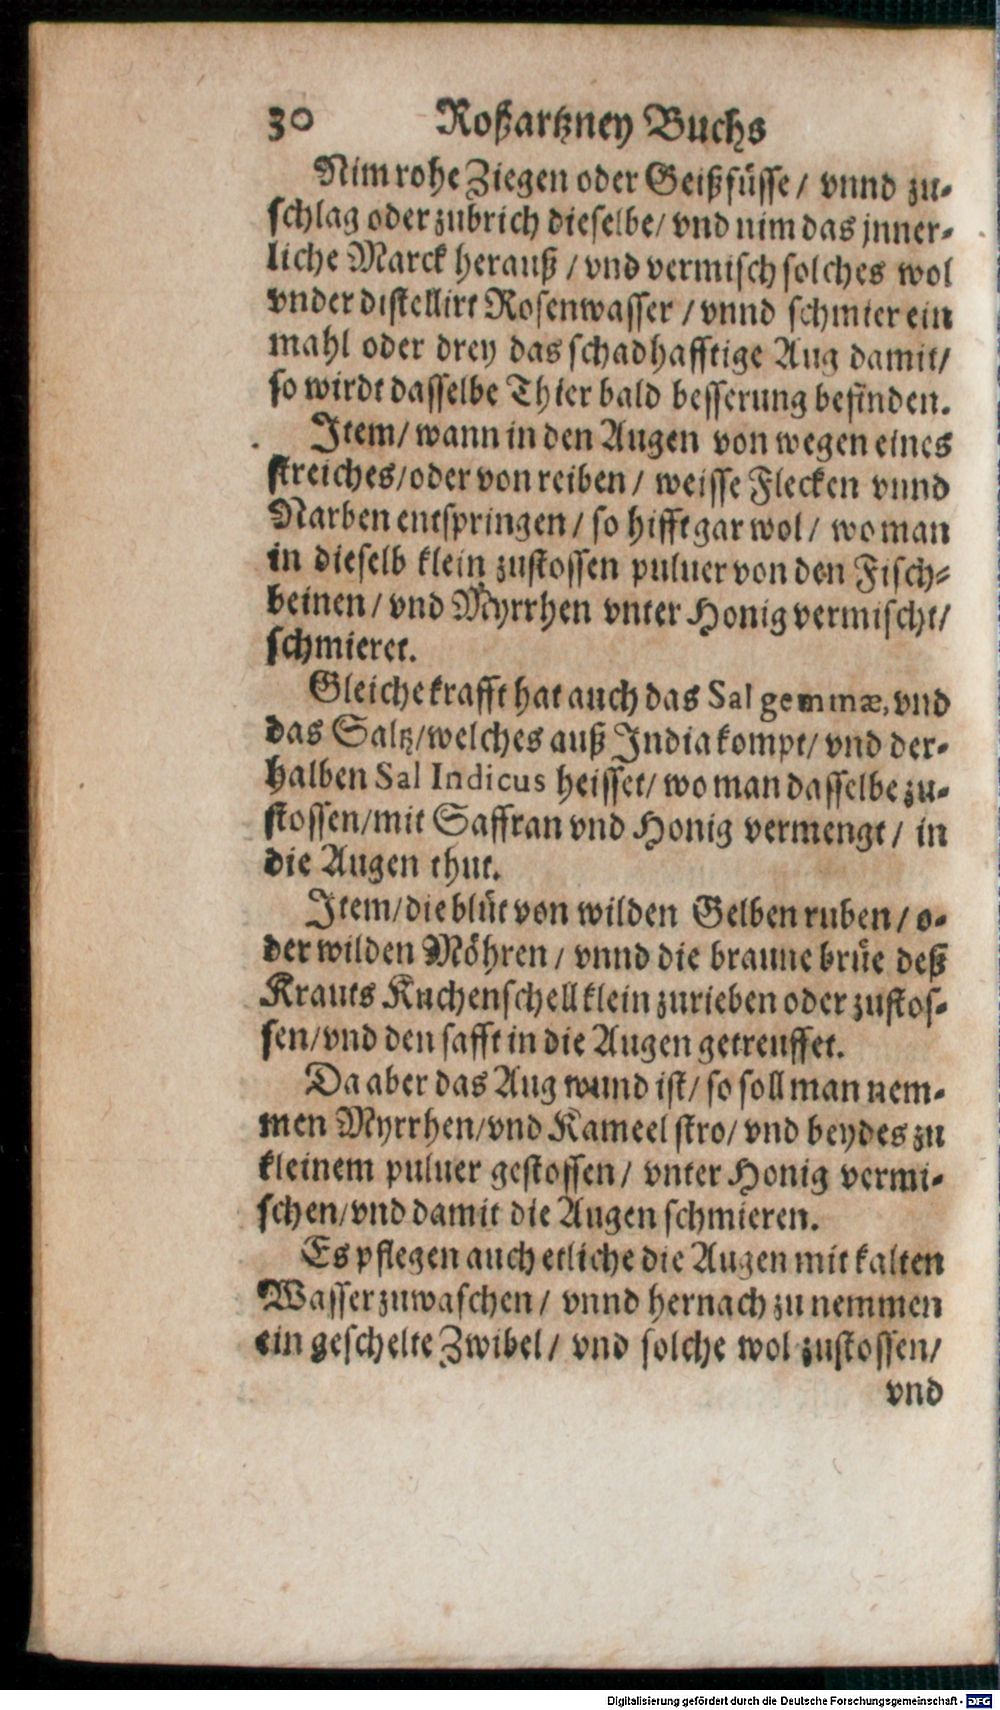 30 Roßartzney Buchs
Nim rohe Ziegen oder Geißfüsse / vnnd zu-
schlag oder zubrich dieselbe / vnd nim das jnner-
liche Marck herauß / vnd vermisch solches wol
vnder distellirt Rosenwasser / vnnd schmier ein
mahl oder drey das schadhafftige Aug damit /
so wirdt dasselbe Thier bald besserung befinden.
Item / wann in den Augen von wegen eines
streiches / oder von reiben / weisse Flecken vnnd
Narben entspringen / so hifft gar wol / wo man
in dieselb klein zustossen puluer von den Fisch-
beinen / vnd Myrrhen vnter Honig vermischt /
schmieret.
Gleiche krafft hat auch das Sal gemmæ, vnd
das Saltz / welches auß India kompt / vnd der-
halben Sal Indicus heisset / wo man dasselbe zu-
stossen / mit Saffran vnd Honig vermengt / in
die Augen thut.
Item / die blüt von wilden Gelben ruben / o-
der wilden Möhren / vnnd die braune brüe deß
Krauts Kuchenschell klein zurieben oder zustos-
sen / vnd den safft in die Augen getreuffet.
Da aber das Aug wund ist / so soll man nem-
men Myrrhen / vnd Kameel stro / vnd beydes zu
kleinem puluer gestossen / vnter Honig vermi-
schen / vnd damit die Augen schmieren.
Es pflegen auch etliche die Augen mit kalten
Wasser zuwaschen / vnnd hernach zu nemmen
ein geschelte Zwibel / vnd solche wol zustossen /
vnd
Digitalisierung gefördert durch die Deutsche Forschungsgemeinschaft - DFG